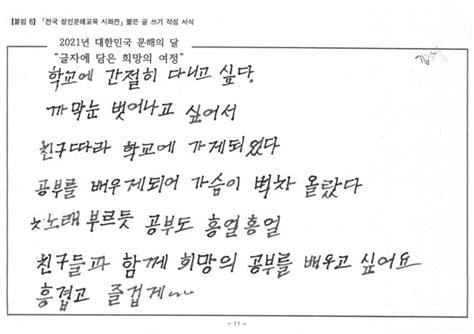 【붙임 6】「전국 성인문해교육 시화전」 짧은 글 쓰기 작성 서식
2021년 대한민국 문해의 달
"글자에 담은 희망의 여정"
학교에 간절히 다니고 싶다.
까막눈 벗어나고 싶어서
친구따라 학교에 가게되었다
공부를 배우게되어 가슴이 벅차 올랐다
노래부르듯 공부도 흥얼흥얼
친구들과 함께 희망의 공부를 배우고 싶어요
흥겹고 즐겁게~~
- 11 -